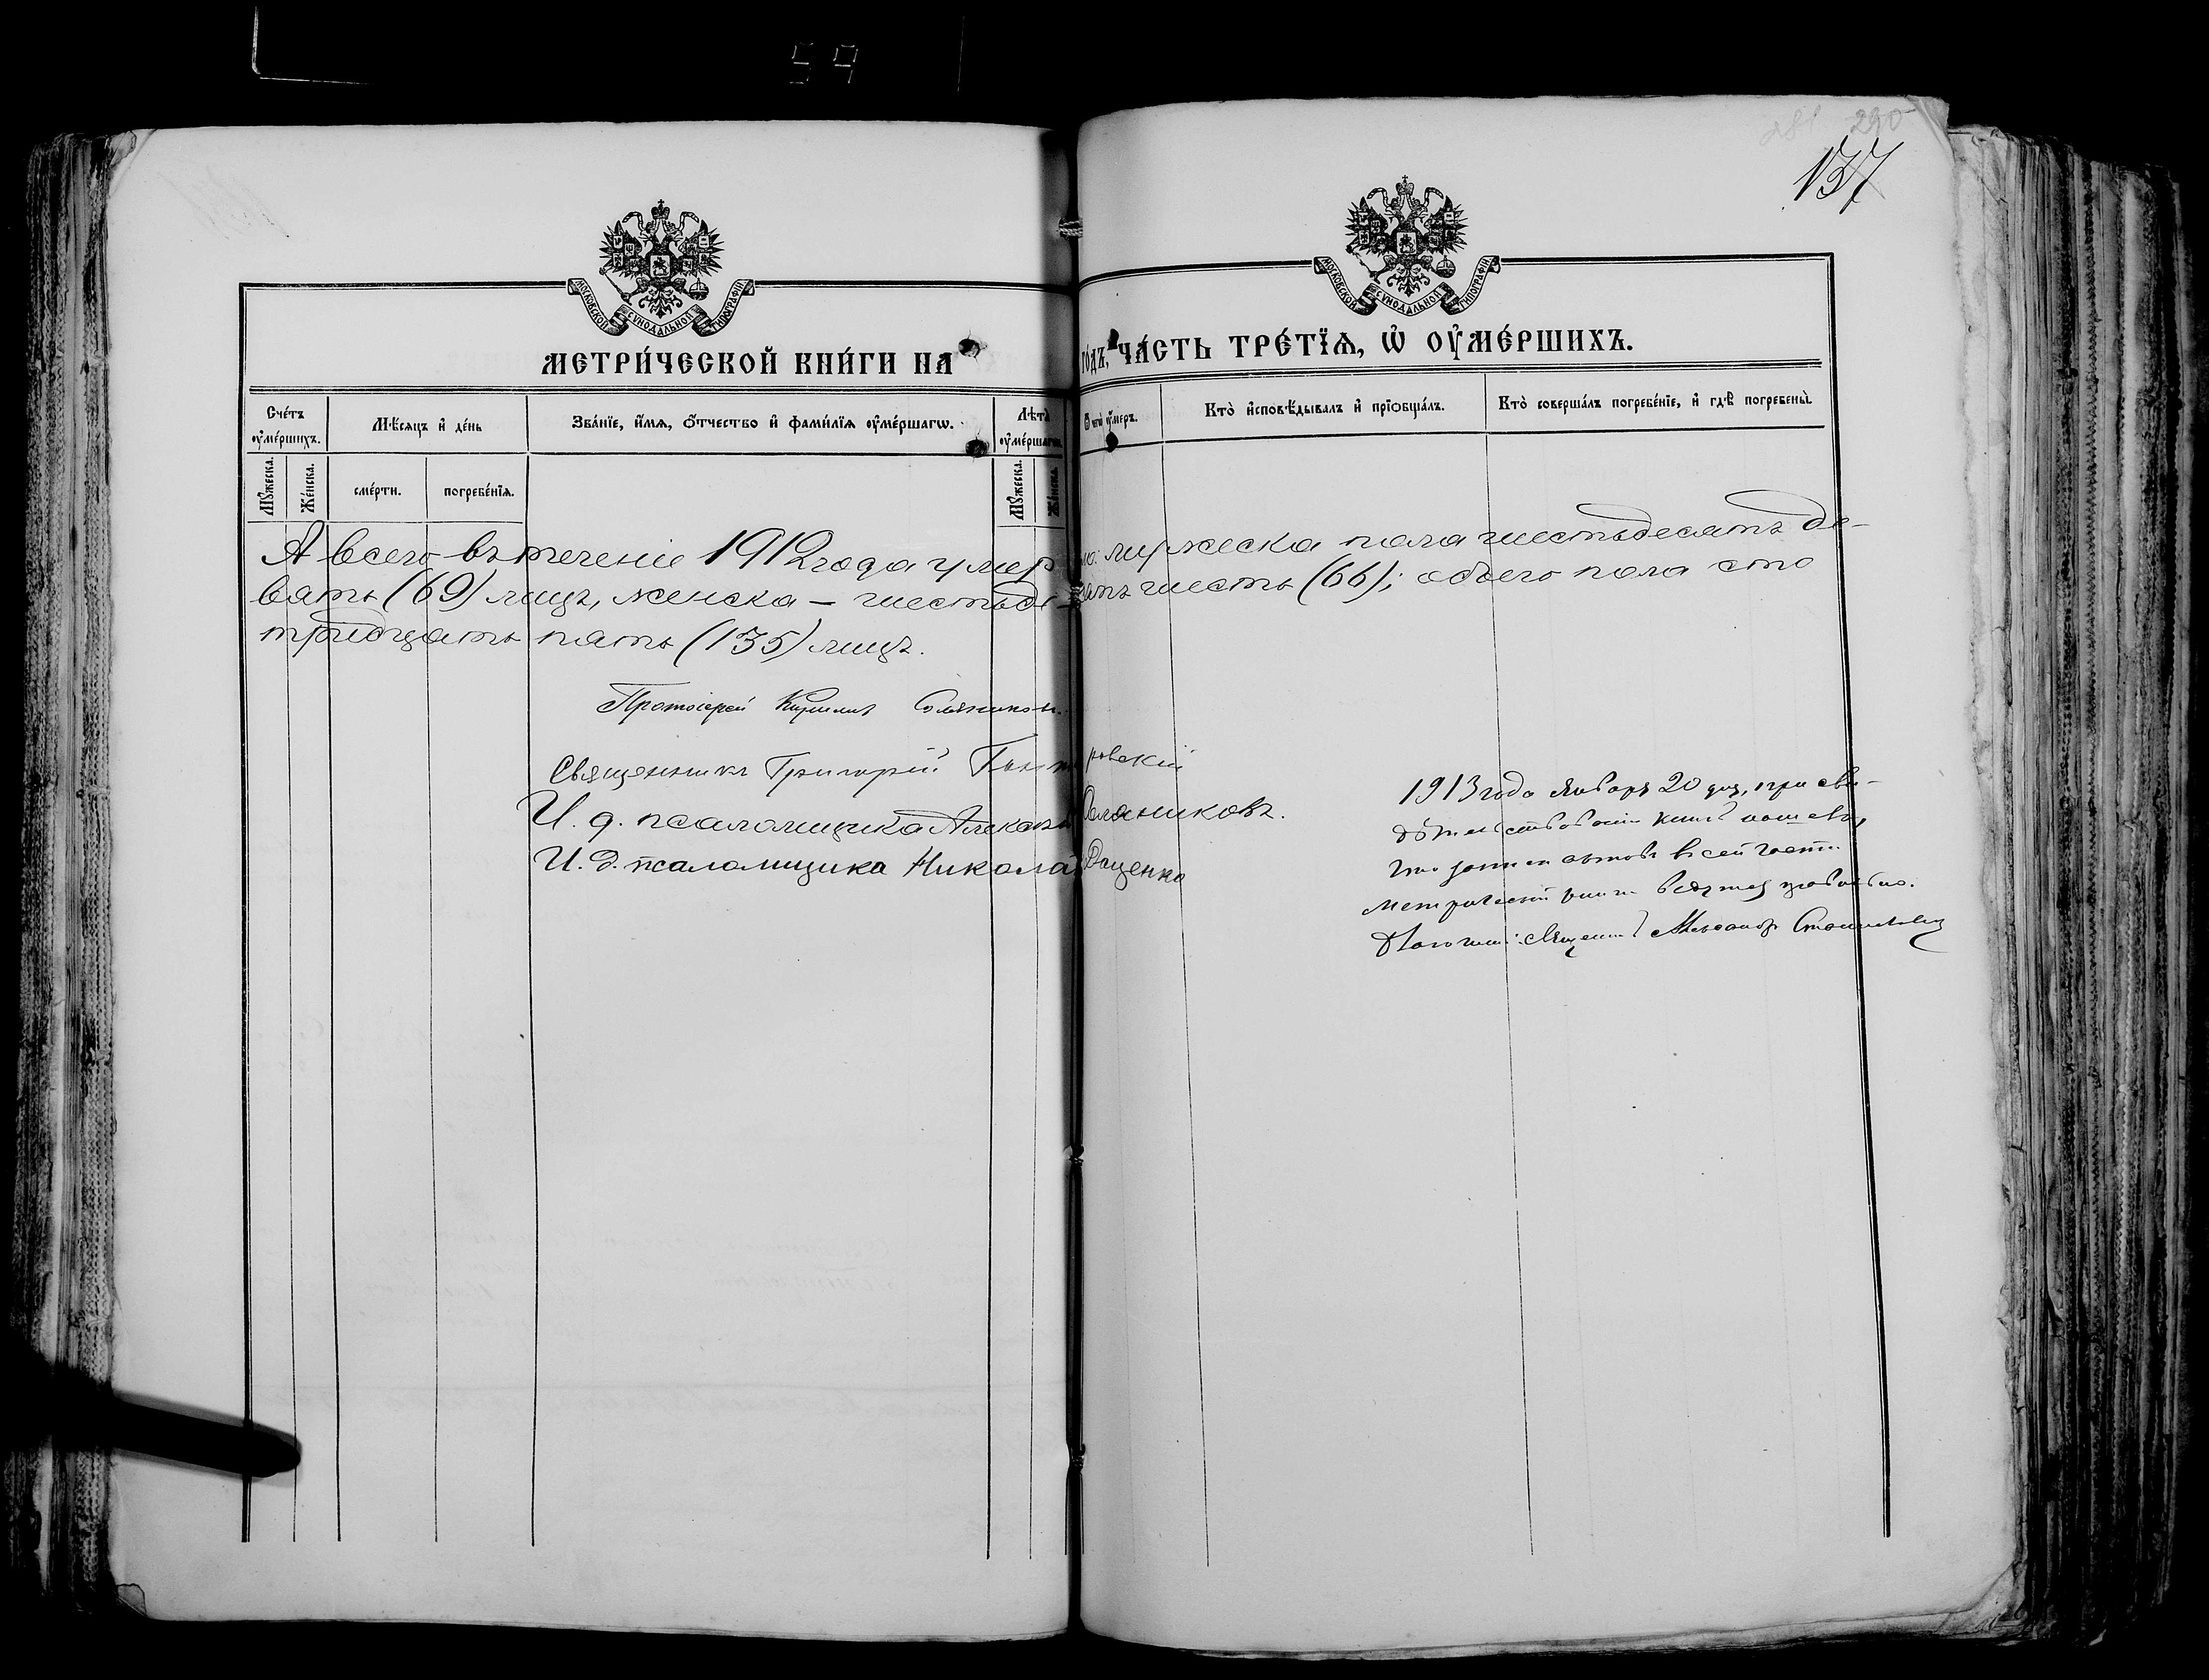 59
290
137
МОСКОВСКОЙ СУНОДАЛЬНОЙ ТИПОГРАФІИ
МОСКОВСКОЙ СУНОДАЛЬНОЙ ТИПОГРАФІИ
МЕТРИ́ЧЕСКОЙ КНИ́ГИ НА го́дъ, ЧА́СТЬ ТРЕ́ТЇѦ, Ѡ҆ ОУ҆МЕ́РШИХЪ.
Сче́тъ оу҆ме́ршихъ.
Мѣ́сяцъ и҆ де́нь
Зва́нїе, и҆́мѧ, ѻ҆́тчество и҆ фами́лїѧ оу҆ме́ршагѡ.
Лѣ́та оу҆ме́ршагѡ.
Ѿ чегѡ̀ оу҆́меръ.
Кто̀ и҆сповѣ́дывалъ и҆ прїѡбща́лъ.
Кто̀ соверша́лъ погребе́нїе, и҆ гдѣ̀ погребены̀.
Мꙋ́жеска.
Же́нска.
сме́рти.
погребе́нїѧ.
Мꙋ́жеска.
Же́нска.
А всего въ теченіе 1912 года умерло: мужеска пола шестьдесятъ де-
вять (69) лицъ, женска – шестьдесятъ шесть (66); обоего пола сто
тридцать пять (135) лицъ.
Протоіерей Кириллъ
Священникъ Григорій
И. д. псаломщика
И. д. псаломщика Николай Даценко
1913 года Января 20 дня, при сви-
дѣтельствованіи книгъ
что записи актовъ в сей части
метрической книги ведутся правильно.
Священникъ Александръ